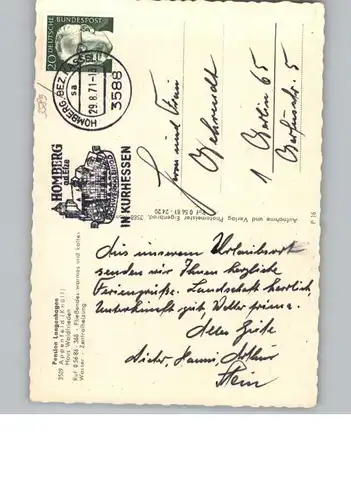 DEUTSCHE BUNDESPOST
20
HOMBERG, BEZ. KASSEL
sa
29.8.71
3588
HOMBERG
a.d. Efze
IN KURHESSEN
Herrn und Frau
Wehrendt
1 Berlin 65
Aufnahme und Verlag Fotomeister Eigenbrod, 3588
Ruf 0 56 81 - 24 20
P 16
Pension Langenhagen
3509 Appenfeld (Knüll)
Haus Waldfrieden
Ruf 0 56 86 - 368 - Fließendes warmes und kaltes
Wasser - Zentralheizung
Aus unserem Urlaubsort
senden wir Ihnen herzliche
Feriengrüße. Landschaft herrlich
Unterkunft gut, Wetter prima.
Alles Gute
Dieter, Hanni, Arthur
Stein